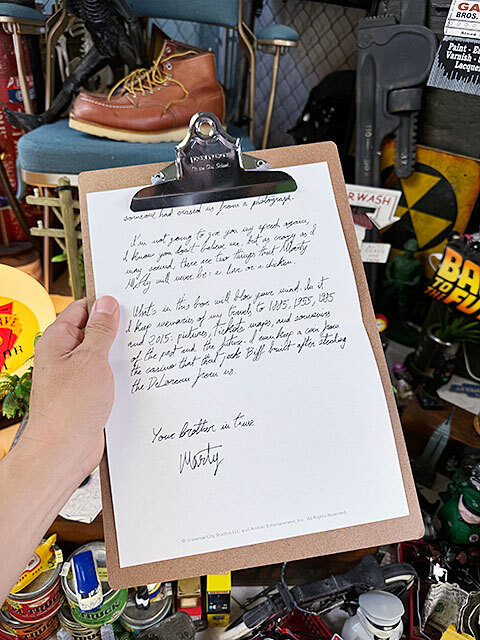 GA
BROS.
Since
Paint - En
Varnish - Sm
Lacque
someone had erased us from a photograph.
I'm not going to give you my speech again,
I know you don't believe me, but as crazy as I
may sound, there are two things that Marty
McFly will never be: a liar or a chicken.
What's in this box will blow your mind. In it
I keep memories of my travels to 1885, 1955, 1985
and 2015: pictures, tickets, maps, and souvenirs
of the past and the future. I even keep a coin from
the casino that that jerk Biff built after stealing
the DeLorean from us.
Your brother in time
Marty
© Universal City Studios LLC and Amblin Entertainment, Inc. All Rights Reserved.
ERWASH
BA
TO THE
FU